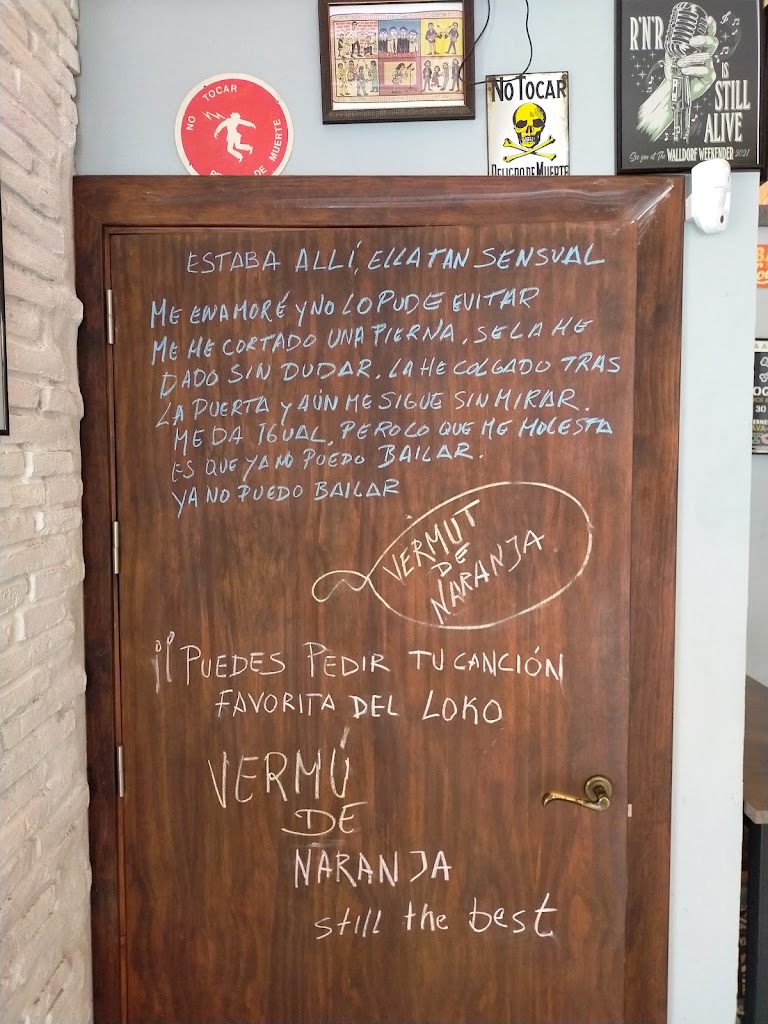 NO TOCAR
DE MUERTE
NO TOCAR
PELIGRO DE MUERTE
R'N'R
IS
STILL
ALIVE
See you at The WALLDORF WEEKENDER 2021
ESTABA ALLÍ, ELLA TAN SENSUAL
ME ENAMORÉ Y NO LO PUDE EVITAR
ME HE CORTADO UNA PIERNA, SE LA HE
DADO SIN DUDAR, LA HE COLGADO TRAS
LA PUERTA Y AÚN ME SIGUE SIN MIRAR.
ME DA IGUAL, PERO LO QUE ME MOLESTA
ES QUE YA NO PUEDO BAILAR.
YA NO PUEDO BAILAR
VERMUT
DE
NARANJA
¡¡PUEDES PEDIR TU CANCIÓN
FAVORITA DEL LOKO
VERMÚ
DE
NARANJA
still the best